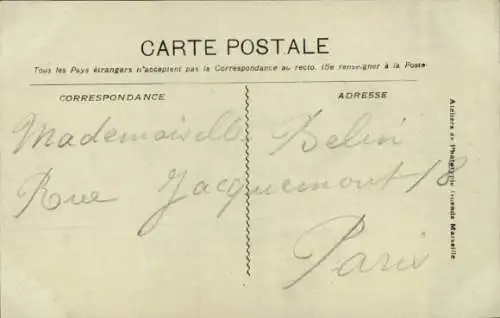 CARTE POSTALE
Tous les Pays étrangers n'acceptent pas la Correspondance au recto. (Se renseigner à la Poste
CORRESPONDANCE
ADRESSE
Mademoiselle Belin
Rue Jacquemont 18
Paris
Ateliers de Phototypie Marseille